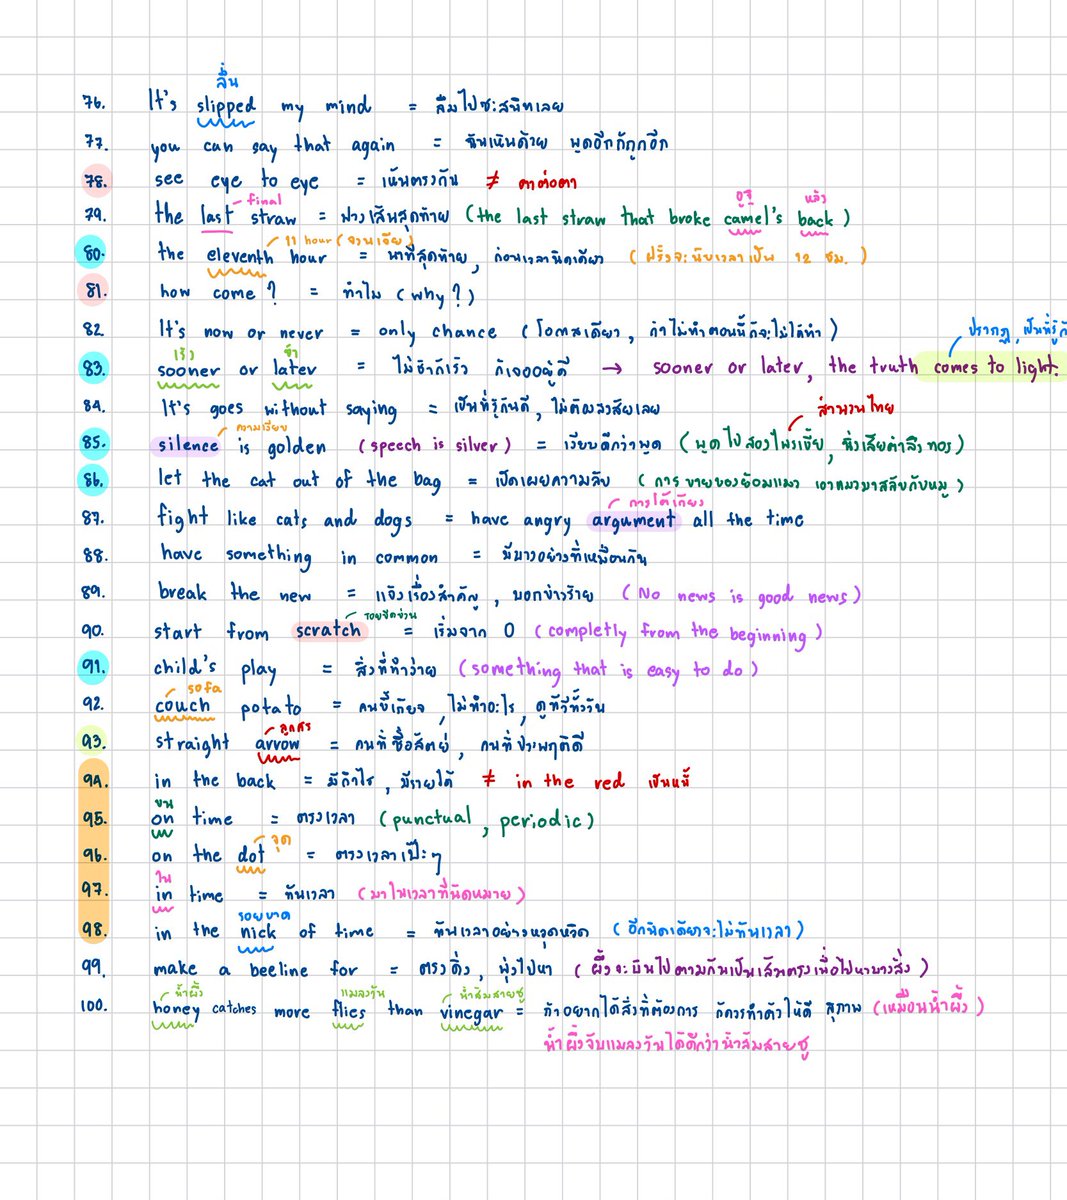 ลื่น
76. It's slipped my mind = ลืมไปซะสนิทเลย
77. you can say that again = ฉันเห็นด้วย พูดอีกก็ถูกอีก
78. see eye to eye = เห็นตรงกัน ≠ ตาต่อตา
final อูฐ หลัง
79. the last straw = ฟางเส้นสุดท้าย (the last straw that broke camel's back)
11 hour (จวนเจียน)
80. the eleventh hour = นาทีสุดท้าย, ก่อนเวลานิดเดียว (ฝรั่งจะนับเวลาเป็น 12 ชม.)
81. how come? = ทำไม (why?)
82 It's now or never = only chance (โอกาสเดียว, ถ้าไม่ทำตอนนี้ก็จะไม่ได้ทำ)
เร็ว ช้า ปรากฏ, เป็นที่รู้
83. sooner or later = ไม่ช้าก็เร็ว ก็เจออยู่ดี → sooner or later, the truth comes to light.
84. It's goes without saying = เป็นที่รู้กันดี, ไม่ต้องสงสัยเลย
ความเงียบ สำนวนไทย
85. silence is golden (speech is silver) = เงียบดีกว่าพูด (พูดไปสองไพเบี้ย, นิ่งเสียตำลึงทอง)
86. let the cat out of the bag = เปิดเผยความลับ (การขายของย้อมแมว เอาแมวมาสลับกับหมู)
การโต้เถียง
87. fight like cats and dogs = have angry argument all the time
88. have something in common = มีบางอย่างที่เหมือนกัน
89. break the new = แจ้งเรื่องสำคัญ, บอกข่าวร้าย (No news is good news)
รอยขีดข่วน
90. start from scratch = เริ่มจาก 0 (completly from the beginning)
91. child's play = สิ่งที่ทำง่าย (something that is easy to do)
sofa
92. couch potato = คนขี้เกียจ, ไม่ทำอะไร, ดูทีวีทั้งวัน
ลูกศร
93. straight arrow = คนที่ซื่อสัตย์, คนที่ประพฤติดี
94. in the back = มีกำไร, มีรายได้ ≠ in the red เป็นหนี้
บน
95. on time = ตรงเวลา (punctual, periodic)
จุด
96. on the dot = ตรงเวลาเป๊ะๆ
ใน
97. in time = ทันเวลา (มาในเวลาที่นัดหมาย)
รอยบาก
98. in the nick of time = ทันเวลาอย่างหวุดหวิด (อีกนิดเดียวจะไม่ทันเวลา)
99. make a beeline for = ตรงดิ่ง, พุ่งไปหา (ผึ้งจะบินไปตามกันเป็นเส้นตรงเพื่อไปหาบางสิ่ง)
น้ำผึ้ง แมลงวัน น้ำส้มสายชู
100. honey catches more flies than vinegar = ถ้าอยากได้สิ่งที่ต้องการ ก็ควรทำตัวให้ดี สุภาพ (เหมือนน้ำผึ้ง)
น้ำผึ้งจับแมลงวันได้ดีกว่าน้ำส้มสายชู